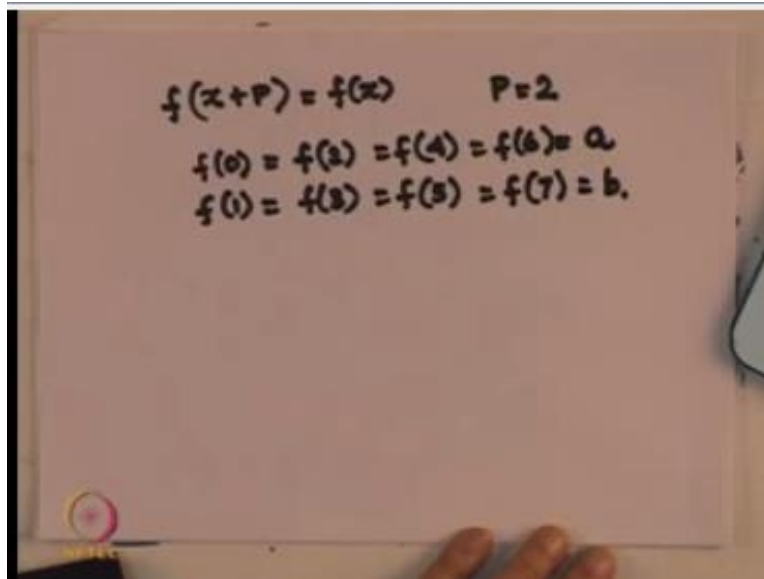 f(x+P) = f(x) P=2
f(0) = f(2) = f(4) = f(6) = a
f(1) = f(3) = f(5) = f(7) = b.
NPTEL